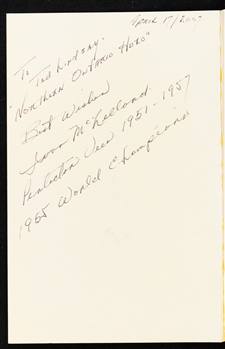 April 15/2007
To Ted Lindsay.
"Northern Ontario Hero"
Best Wishes
Ivan McLelland
Penticton Vees 1951-1957
1955 World Champions